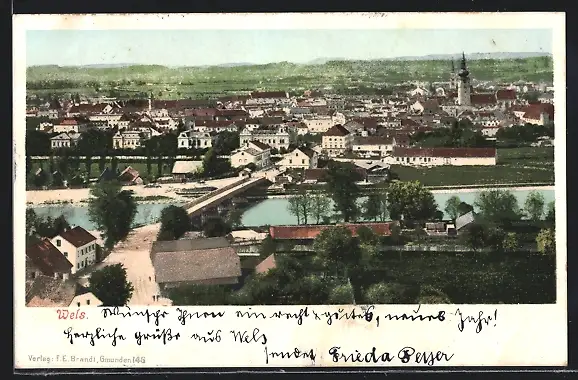 Wels. Wünsche Ihnen ein recht gutes, neues Jahr!
herzliche Grüße aus Wels
sendet Frieda
Verlag: F. E. Brandt, Gmunden 148